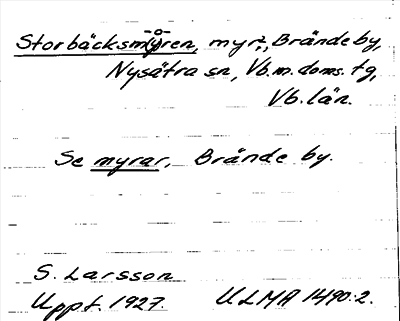 Storbäcksm(y)ren, myr, Brände by,
Nysätra sn, Vb. m. doms. tg,
Vb. län.
Se myrar, Brånde by.
S. Larsson
Uppt. 1927. ULMA 1490:2.